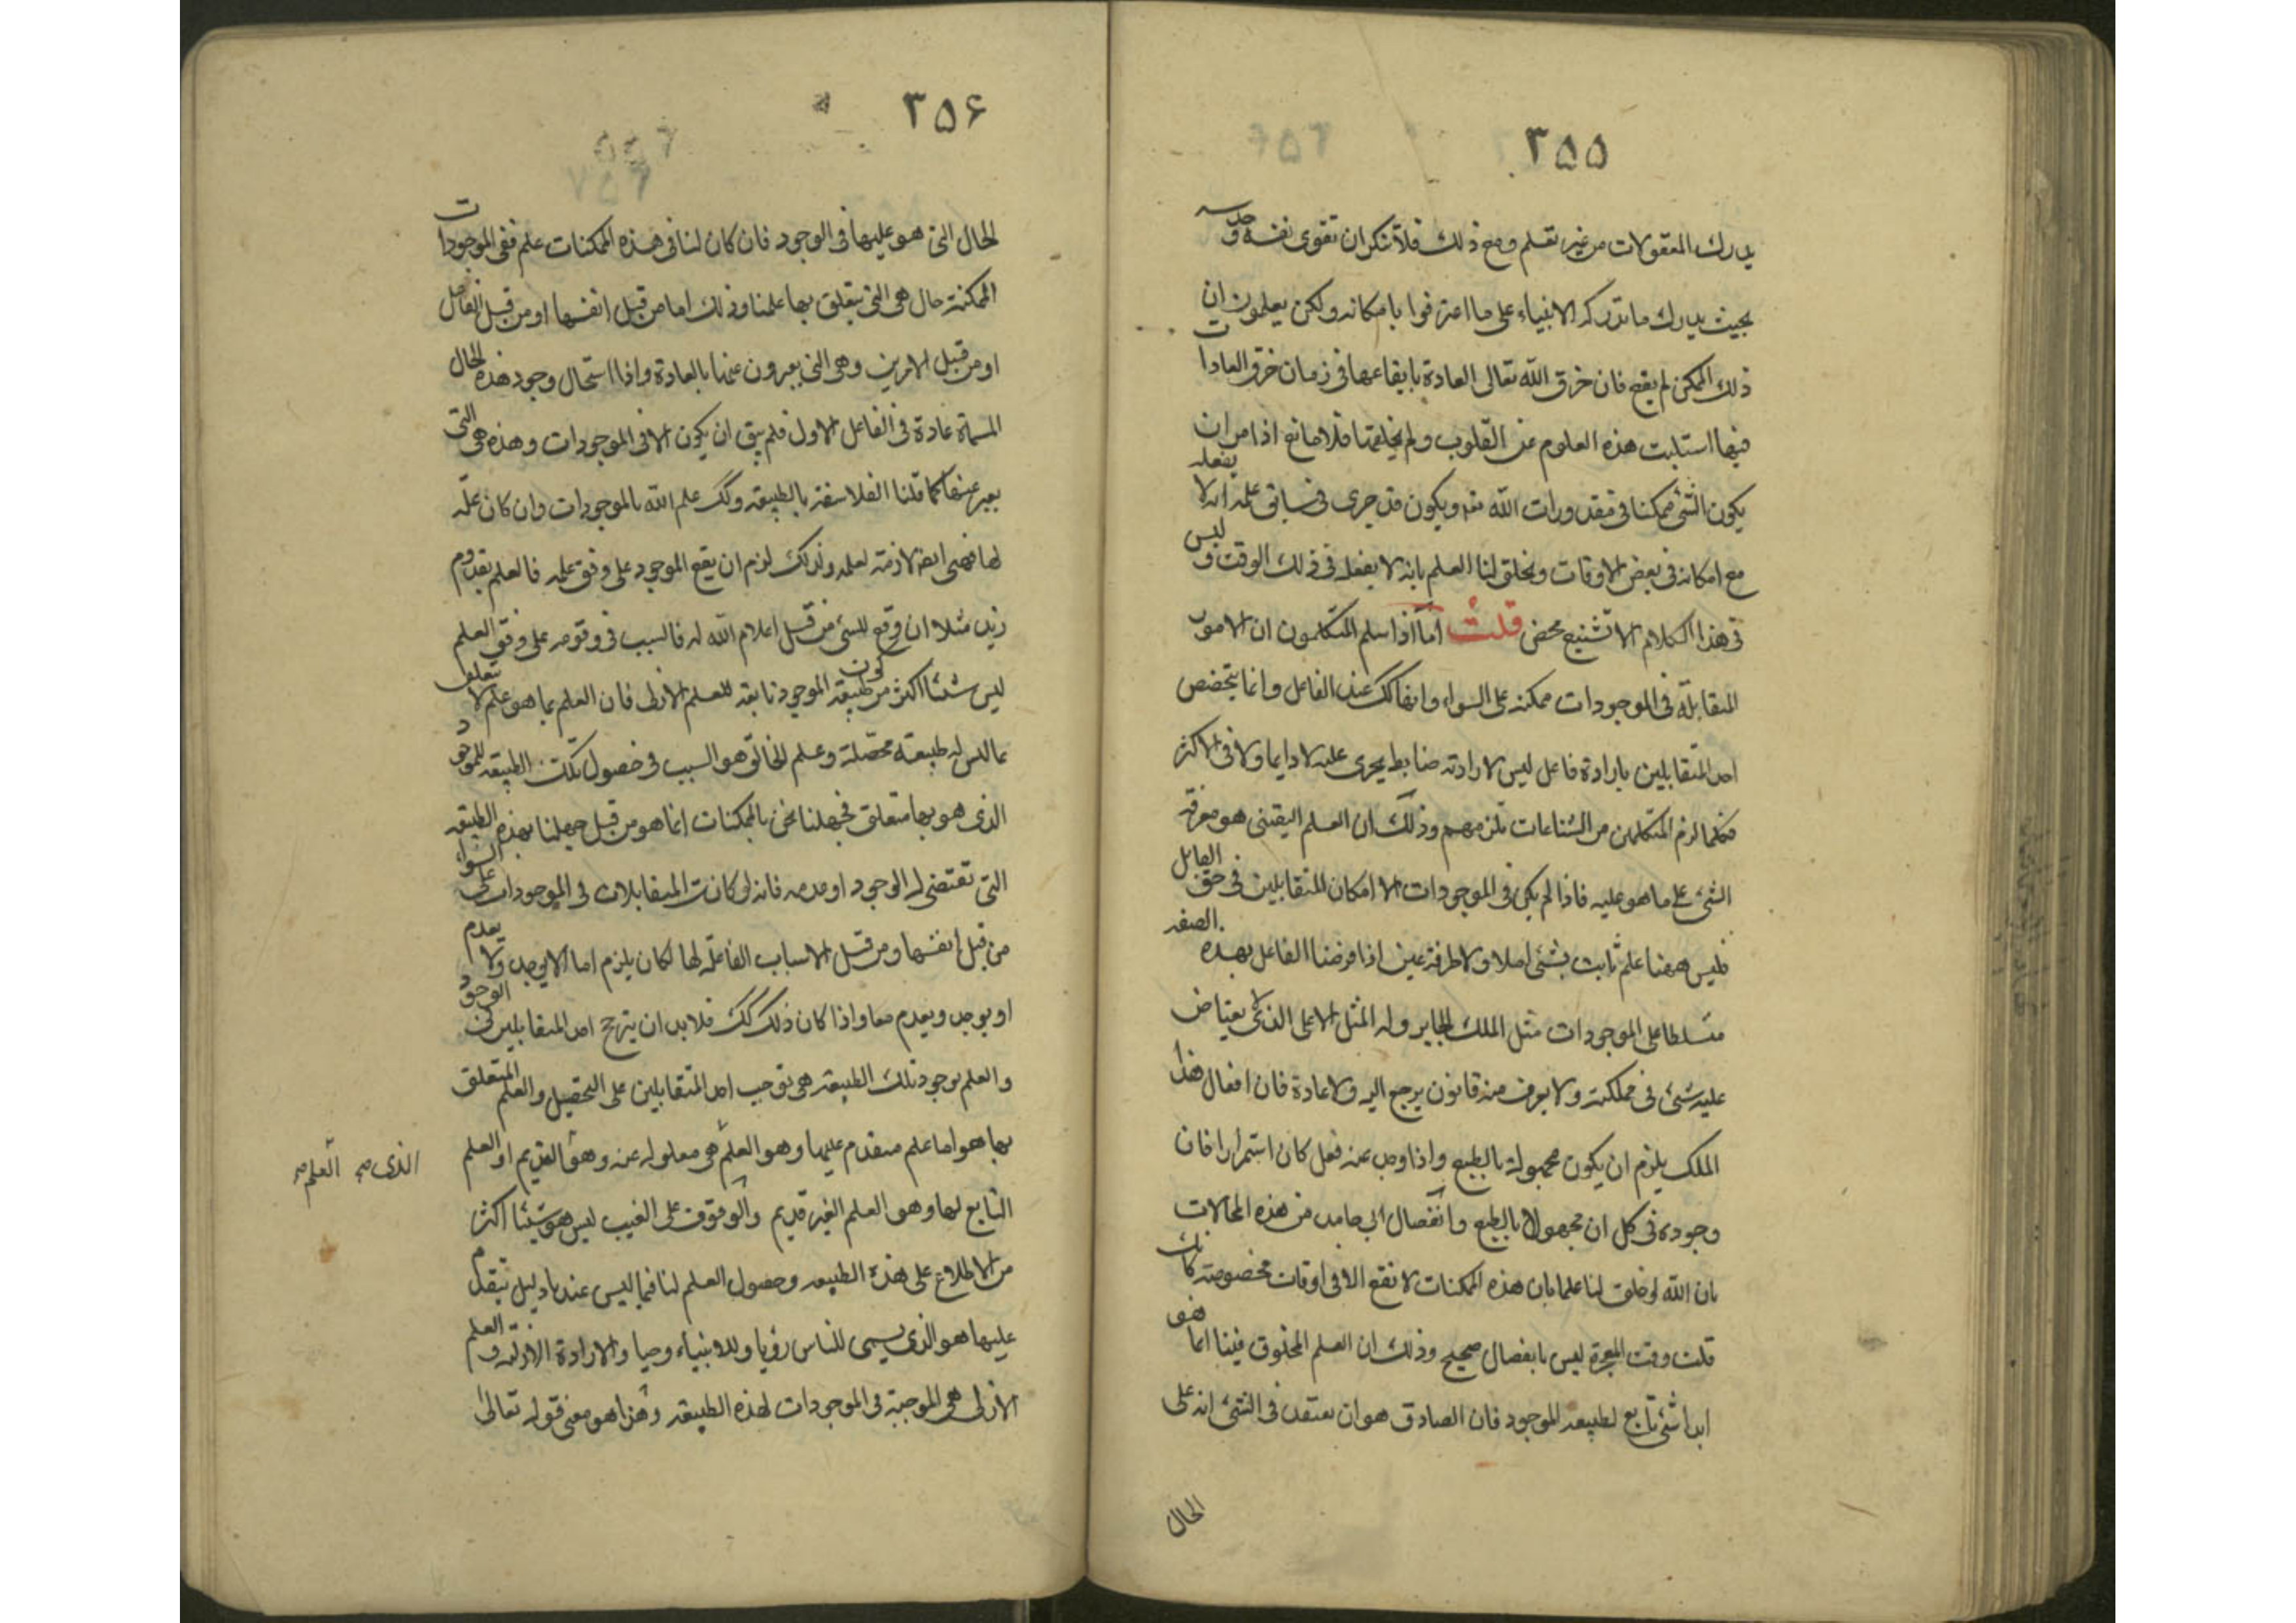 ٣٥٥
يدرك المعقولات من غير تعلم ومع ذلك فلا ننكر ان تقوى نفسه وحدسه
بحيث يدرك ما تدركه الانبياء على ما اعترفوا بامكانه ولكن يعلمون ان
ذلك الممكن لم يقع فان خرق الله تعالى العادة بايقاعها فى زمان خرق العادات
فيها استلبت هذه العلوم عن القلوب ولم يخلقها فلا مانع اذا من ان
يكون الشئ ممكنا فى مقدورات الله ويكون قد جرى فى سابق علمه انه لا يفعله
مع امكانه فى بعض الاوقات ويخلق لنا العلم بانه لا يفعله فى ذلك الوقت وليس
فى هذا الكلام الا تشنيع محض قلت اما اذا سلم المتكلمون ان الامور
المتقابلة فى الموجودات ممكنه على السواء وانها كك عند الفاعل وانما يتخصص
احد المتقابلين بارادة فاعل ليس لارادته ضابط يجرى عليه لا دايما ولا فى الاكثر
فكلما لزم المتكلمين من الشناعات تلزمهم وذلك ان العلم اليقينى هو معرفة
الشئ على ما هو عليه فاذا لم يكن فى الموجودات الا امكان المتقابلين فى حق القابل
فليس ههنا علم ثابت بشئ اصلا ولا طرفة عين اذا فرضنا الفاعل بهذه الصفه
متسلطا على الموجودات مثل الملك الجاير وله المثل الاعلى الذى لا يعتاض
عليه شئ فى مملكته ولا يعرف منه قانون يرجع اليه ولا عادة فان افعال هذا
الملك يلزم ان يكون مجهولة بالطبع واذا وجد عنه فعل كان استمرار افان
وجوده فى كل ان مجهولا بالطبع وانفصال ابى حامد من هذه المحالات
بان الله لو خلق لنا علما بان هذه الممكنات لا تقع الا فى اوقات مخصوصة كانك
قلت وقت المعجزة ليس بانفصال صحيح وذلك ان العلم المخلوق فينا انما هو
ابدا شئ تابع لطبيعه الموجود فان الصادق هو ان يعتقد فى الشئ انه على
الحال
٣٥۶
الحال التى هو عليها فى الوجود فان كان لنا فى هذه الممكنات علم ففى الموجودات
الممكنة حال هى التى يتعلق بها علمنا وذلك اما من قبل انفسها او من قبل الفاعل
او من قبل الامرين وهى التى يعبرون عنها بالعادة واذا استحال وجود هذه الحال
المسماة عادة فى الفاعل الاول فلم يبق ان يكون الا فى الموجودات وهذه هى التى
يعبر عنها كما قلنا الفلاسفة بالطبيعه وكك علم الله بالموجودات وان كان علة
لها فهى ايضا لازمة لعلمه ولذلك لزم ان يقع الموجود على وفق علمه فالعلم بقدوم
زيد مثلا ان وقع للنبى من قبل اعلام الله له فالسبب فى وقوعه على وفق العلم
ليس شيئا اكثر من كون طبيعه الموجود تابعة للعلم الازلى فان العلم بما هو علم لا تعلق
بما ليس له طبيعة محصلة وعلم الخالق هو السبب فى حصول تلك الطبيعه للموجود
الذى هو بها متعلق فجهلنا نحن بالممكنات انما هو من قبل جهلنا بهذه الطبيعه
التى تقتضى له الوجود او عدمه فانه لو كانت المتقابلات فى الموجودات على السواء
من قبل انفسها ومن قبل الاسباب الفاعلة لها لكان يلزم اما الا يوجد ولا يعدم
او يوجد ويعدم معا واذا كان ذلك كك فلا بد ان يترجح احد المتقابلين فى الوجود
والعلم بوجود تلك الطبيعه هى توجب احد المتقابلين على التحصيل والعلم المتعلق
بها هو اما علم متقدم عليها وهو العلم هى معلوله عنه وهو القديم او العلم
التابع لها وهو العلم الغير قديم والوقوف على الغيب ليس هو شيئا اكثر
من الاطلاع على هذه الطبيعه وحصول العلم لنا فيما ليس عندنا دليل يتقدم
عليها هو الذى يسمى للناس رؤيا وللانبياء وحيا والارادة الازلية والعلم
الازلى هى الموجبة فى الموجودات لهذه الطبيعه وهذا هو معنى قوله تعالى
الذى صح العلم صح